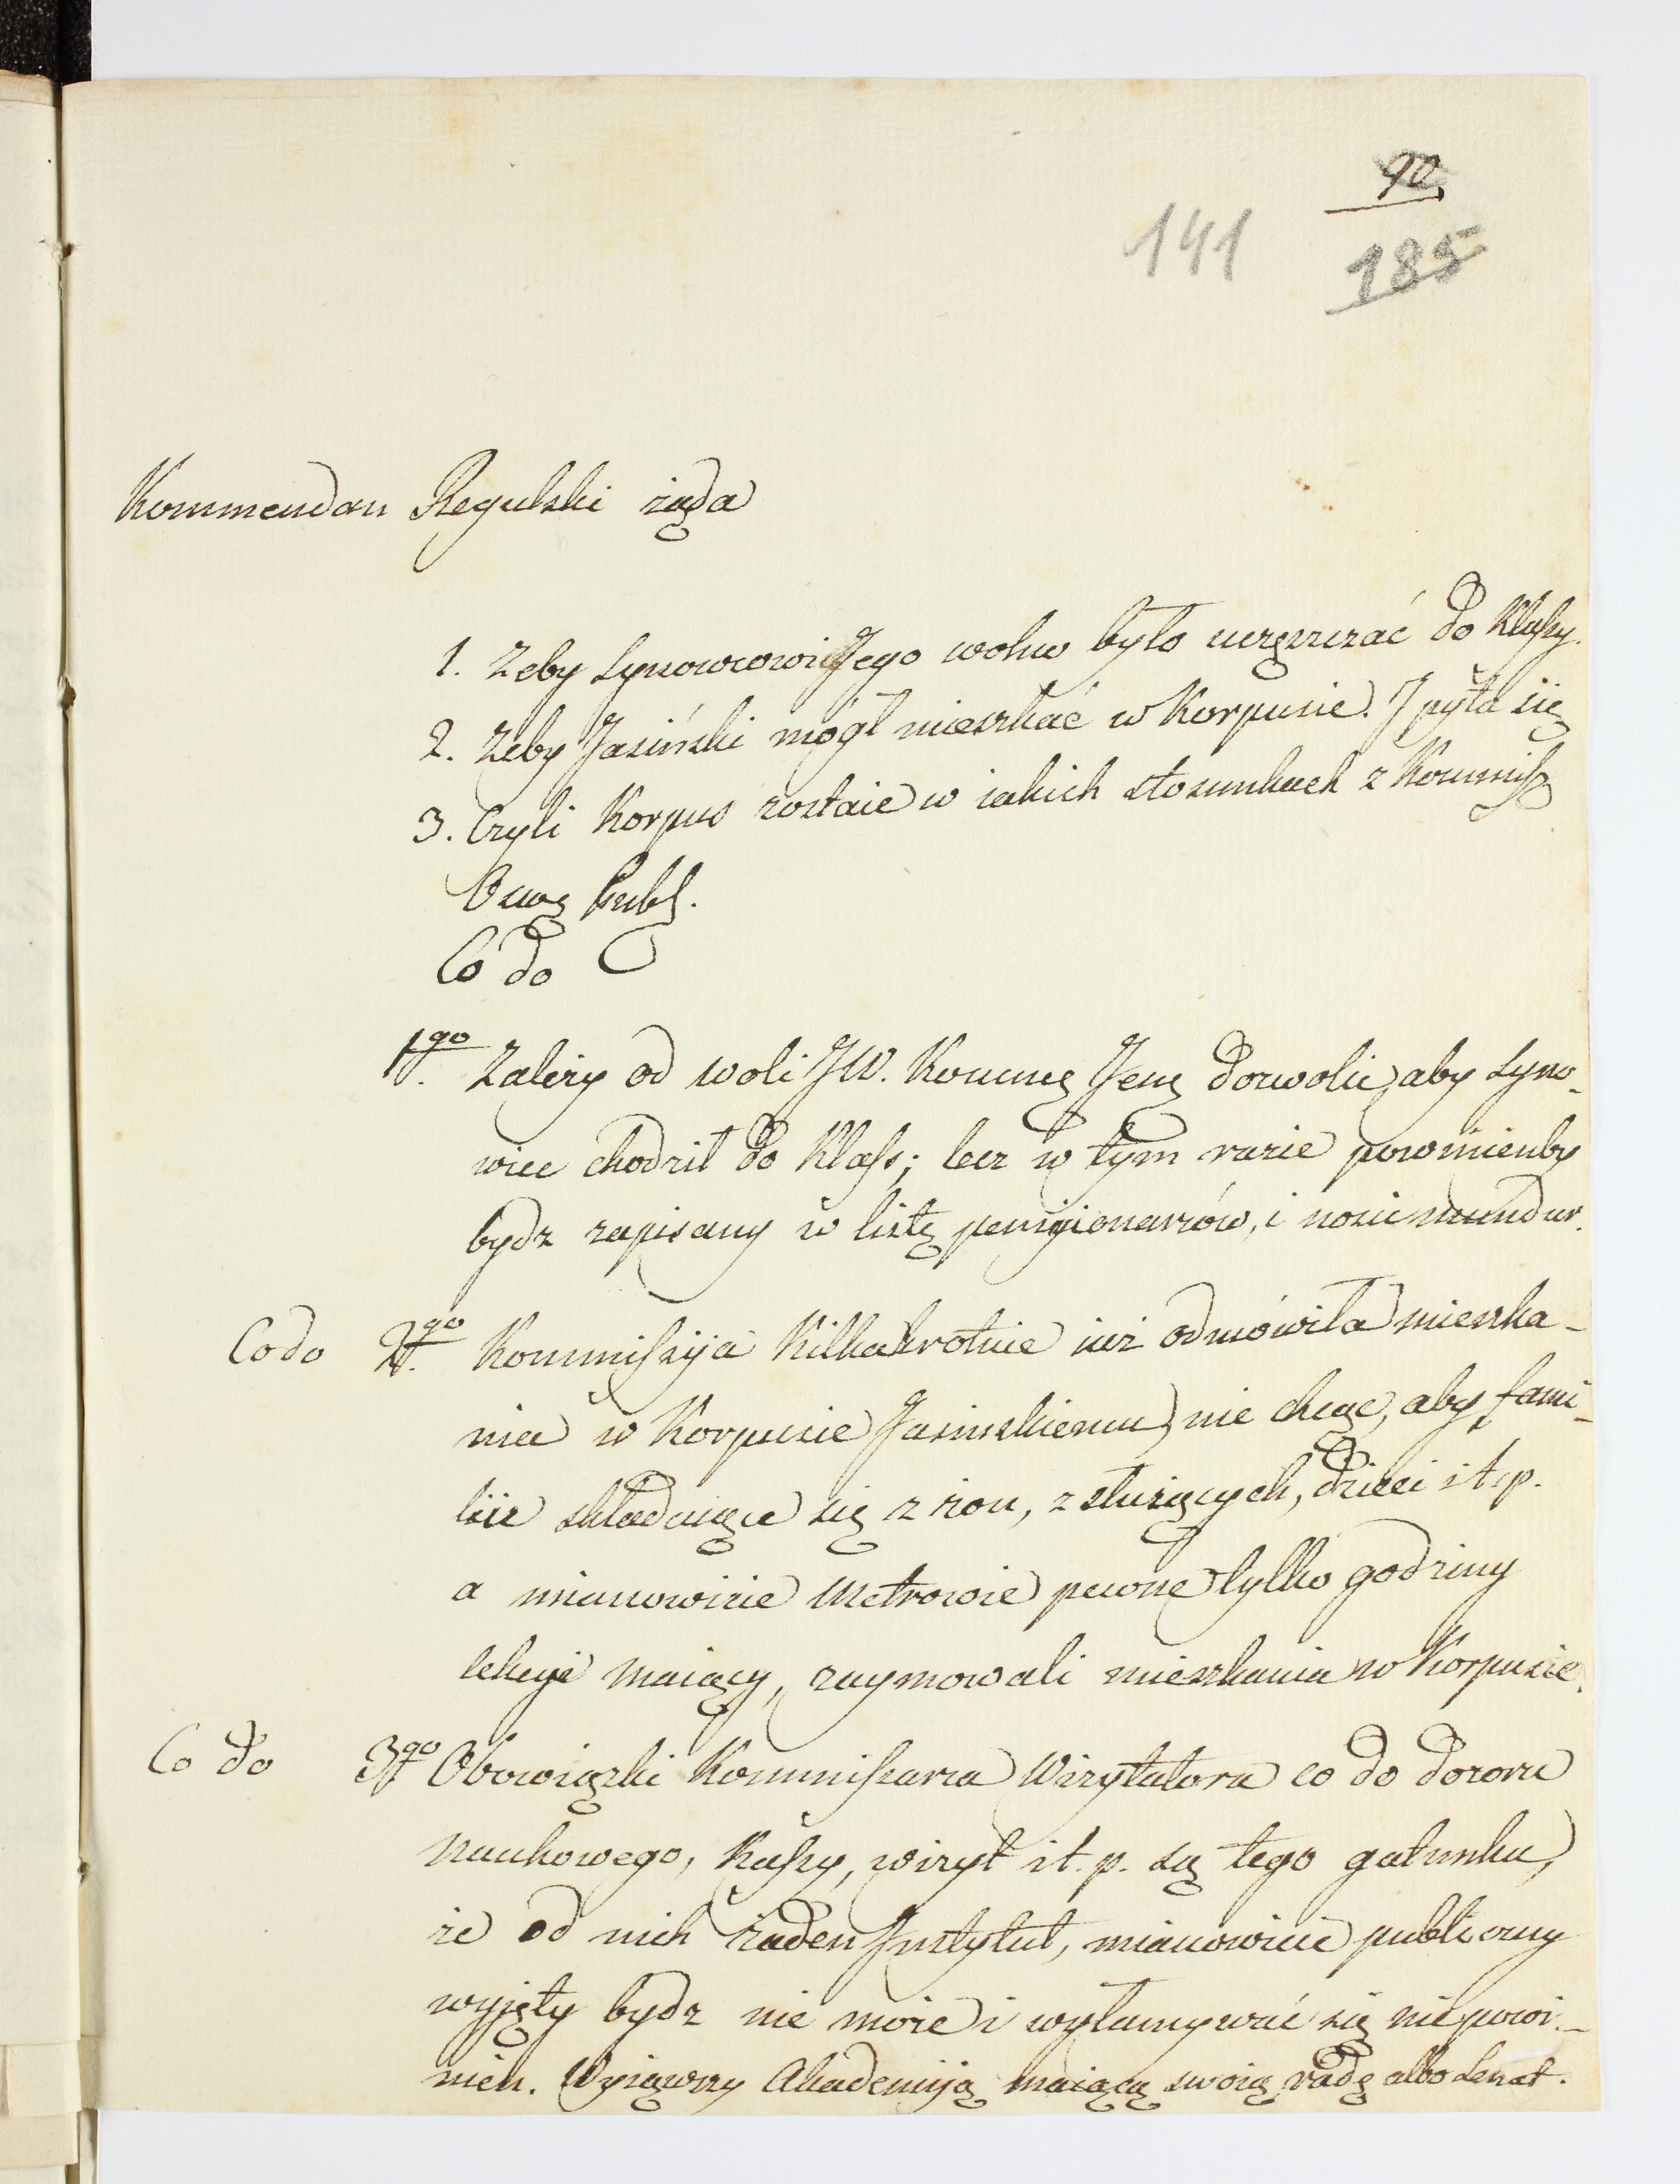 90
141 185
Kommendan Regulski żąda
1. Żeby synowcowi Jego wolno było uczęszczać do Klassy.
2. Żeby Jasiński mógł mieszkać w Korpusie. J pyta się
3. Czyli Korpus zostaie w iakich stosunkach z Kommiss
Ośw Publ.
Co do
1go. Zależy od woli JW. Komme Jene dozwolić, aby syno-
wiec chodził do Klass; lecz w tym razie powinienby
bydz zapisany w listę pensyionarzów, i nosić mundur.
Co do 2go. Kommissyia Kilkakrotnie iuż odmówiła mieszka-
nia w Korpusie Jasinskiemu, nie chcąc, aby fami-
liie składaiące się z żon, z służących, dzieci i t. p.
a mianowicie Metrowie pewne tylko godziny
lekcyi maiący, zaymowali mieszkania w Korpusie.
Co do 3go Obowiązki Kommissarza Wizytatora co do dozoru
naukowego, Kassy, wizyt i t. p. są tego gatunku,
że od nich żaden Jnstytut, mianowicie publiczny
wyięty bydz nie może i wyłamywać się nie powi-
nien. Wyiąwszy Akademiją maiącą swoią radę albo Senat.